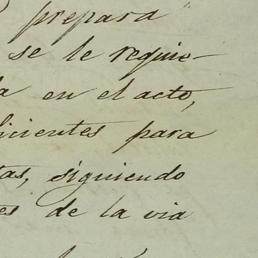 prepara
se le requie-
en el acto,
icientes para
tas, siguiendo
es de la via